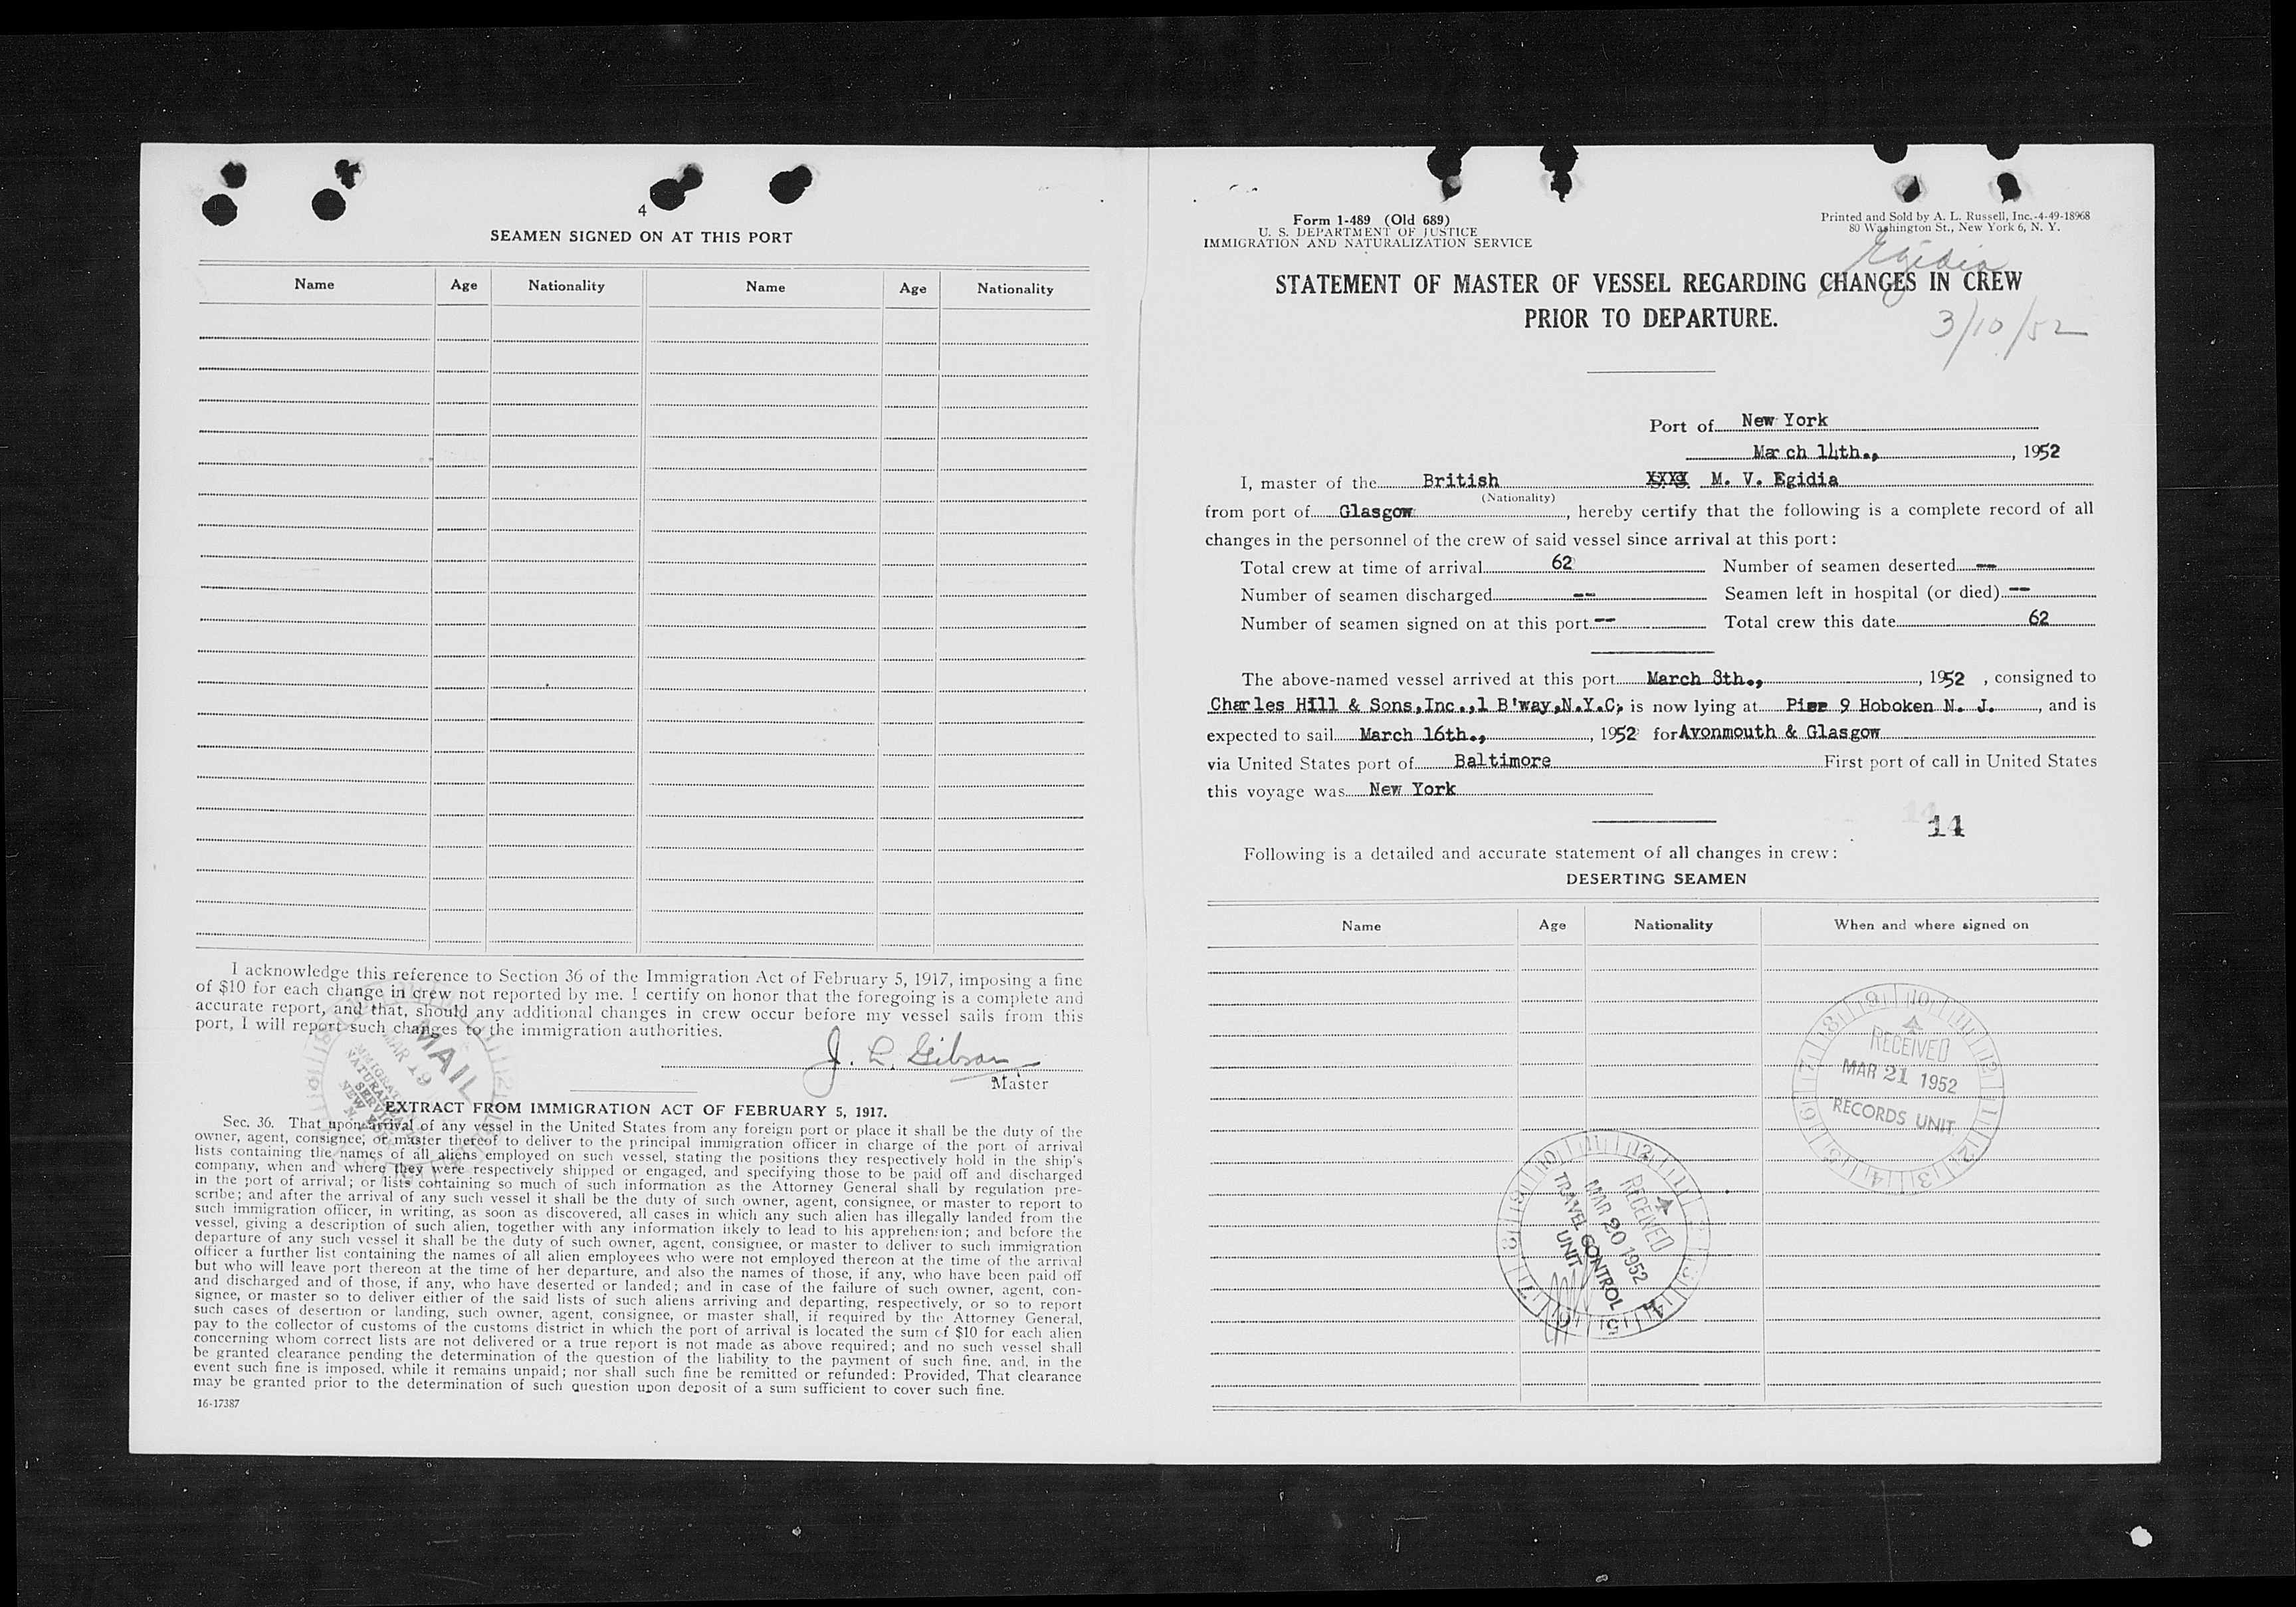 4
SEAMEN SIGNED ON AT THIS PORT
Name Age Nationality Name Age Nationality
I acknowledge this reference to Section 36 of the Immigration Act of February 5, 1917, imposing a fine
of $10 for each change in crew not reported by me. I certify on honor that the foregoing is a complete and
accurate report, and that, should any additional changes in crew occur before my vessel sails from this
port, I will report such changes to the immigration authorities.
J. L. Gibson
Master
MAIL
MAR 19
EXTRACT FROM IMMIGRATION ACT OF FEBRUARY 5, 1917.
Sec. 36. That upon arrival of any vessel in the United States from any foreign port or place it shall be the duty of the
owner, agent, consignee, or master thereof to deliver to the principal immigration officer in charge of the port of arrival
lists containing the names of all aliens employed on such vessel, stating the positions they respectively hold in the ship's
company, when and where they were respectively shipped or engaged, and specifying those to be paid off and discharged
in the port of arrival; or lists containing so much of such information as the Attorney General shall by regulation pre-
scribe; and after the arrival of any such vessel it shall be the duty of such owner, agent, consignee, or master to report to
such immigration officer, in writing, as soon as discovered, all cases in which any such alien has illegally landed from the
vessel, giving a description of such alien, together with any information likely to lead to his apprehension; and before the
departure of any such vessel it shall be the duty of such owner, agent, consignee, or master to deliver to such immigration
officer a further list containing the names of all alien employees who were not employed thereon at the time of the arrival
but who will leave port thereon at the time of her departure, and also the names of those, if any, who have been paid off
and discharged and of those, if any, who have deserted or landed; and in case of the failure of such owner, agent, con-
signee, or master so to deliver either of the said lists of such aliens arriving and departing, respectively, or so to report
such cases of desertion or landing, such owner, agent, consignee, or master shall, if required by the Attorney General,
pay to the collector of customs of the customs district in which the port of arrival is located the sum of $10 for each alien
concerning whom correct lists are not delivered or a true report is not made as above required; and no such vessel shall
be granted clearance pending the determination of the question of the liability to the payment of such fine, and, in the
event such fine is imposed, while it remains unpaid; nor shall such fine be remitted or refunded: Provided, That clearance
may be granted prior to the determination of such question upon deposit of a sum sufficient to cover such fine.
16-17387
Form 1-489 (Old 689)
U. S. DEPARTMENT OF JUSTICE
IMMIGRATION AND NATURALIZATION SERVICE
Printed and Sold by A. L. Russell, Inc.-4-49-18968
80 Washington St., New York 6, N. Y.
Egidia
STATEMENT OF MASTER OF VESSEL REGARDING CHANGES IN CREW
PRIOR TO DEPARTURE.
3/10/52
Port of New York
March 14th., , 1952
I, master of the British XXXX M. V. Egidia
(Nationality)
from port of Glasgow , hereby certify that the following is a complete record of all
changes in the personnel of the crew of said vessel since arrival at this port:
Total crew at time of arrival 62 Number of seamen deserted --
Number of seamen discharged -- Seamen left in hospital (or died) --
Number of seamen signed on at this port -- Total crew this date 62
The above-named vessel arrived at this port March 8th., , 1952 , consigned to
Charles Hill & Sons,Inc.,1 B'way,N.Y.C, is now lying at Pier 9 Hoboken N. J. , and is
expected to sail March 16th., , 1952 for Avonmouth & Glasgow
via United States port of Baltimore First port of call in United States
this voyage was New York
14
Following is a detailed and accurate statement of all changes in crew:
DESERTING SEAMEN
Name Age Nationality When and where signed on
RECEIVED
MAR 21 1952
RECORDS UNIT
RECEIVED
MAR 20 1952
TRAVEL CONTROL
UNIT